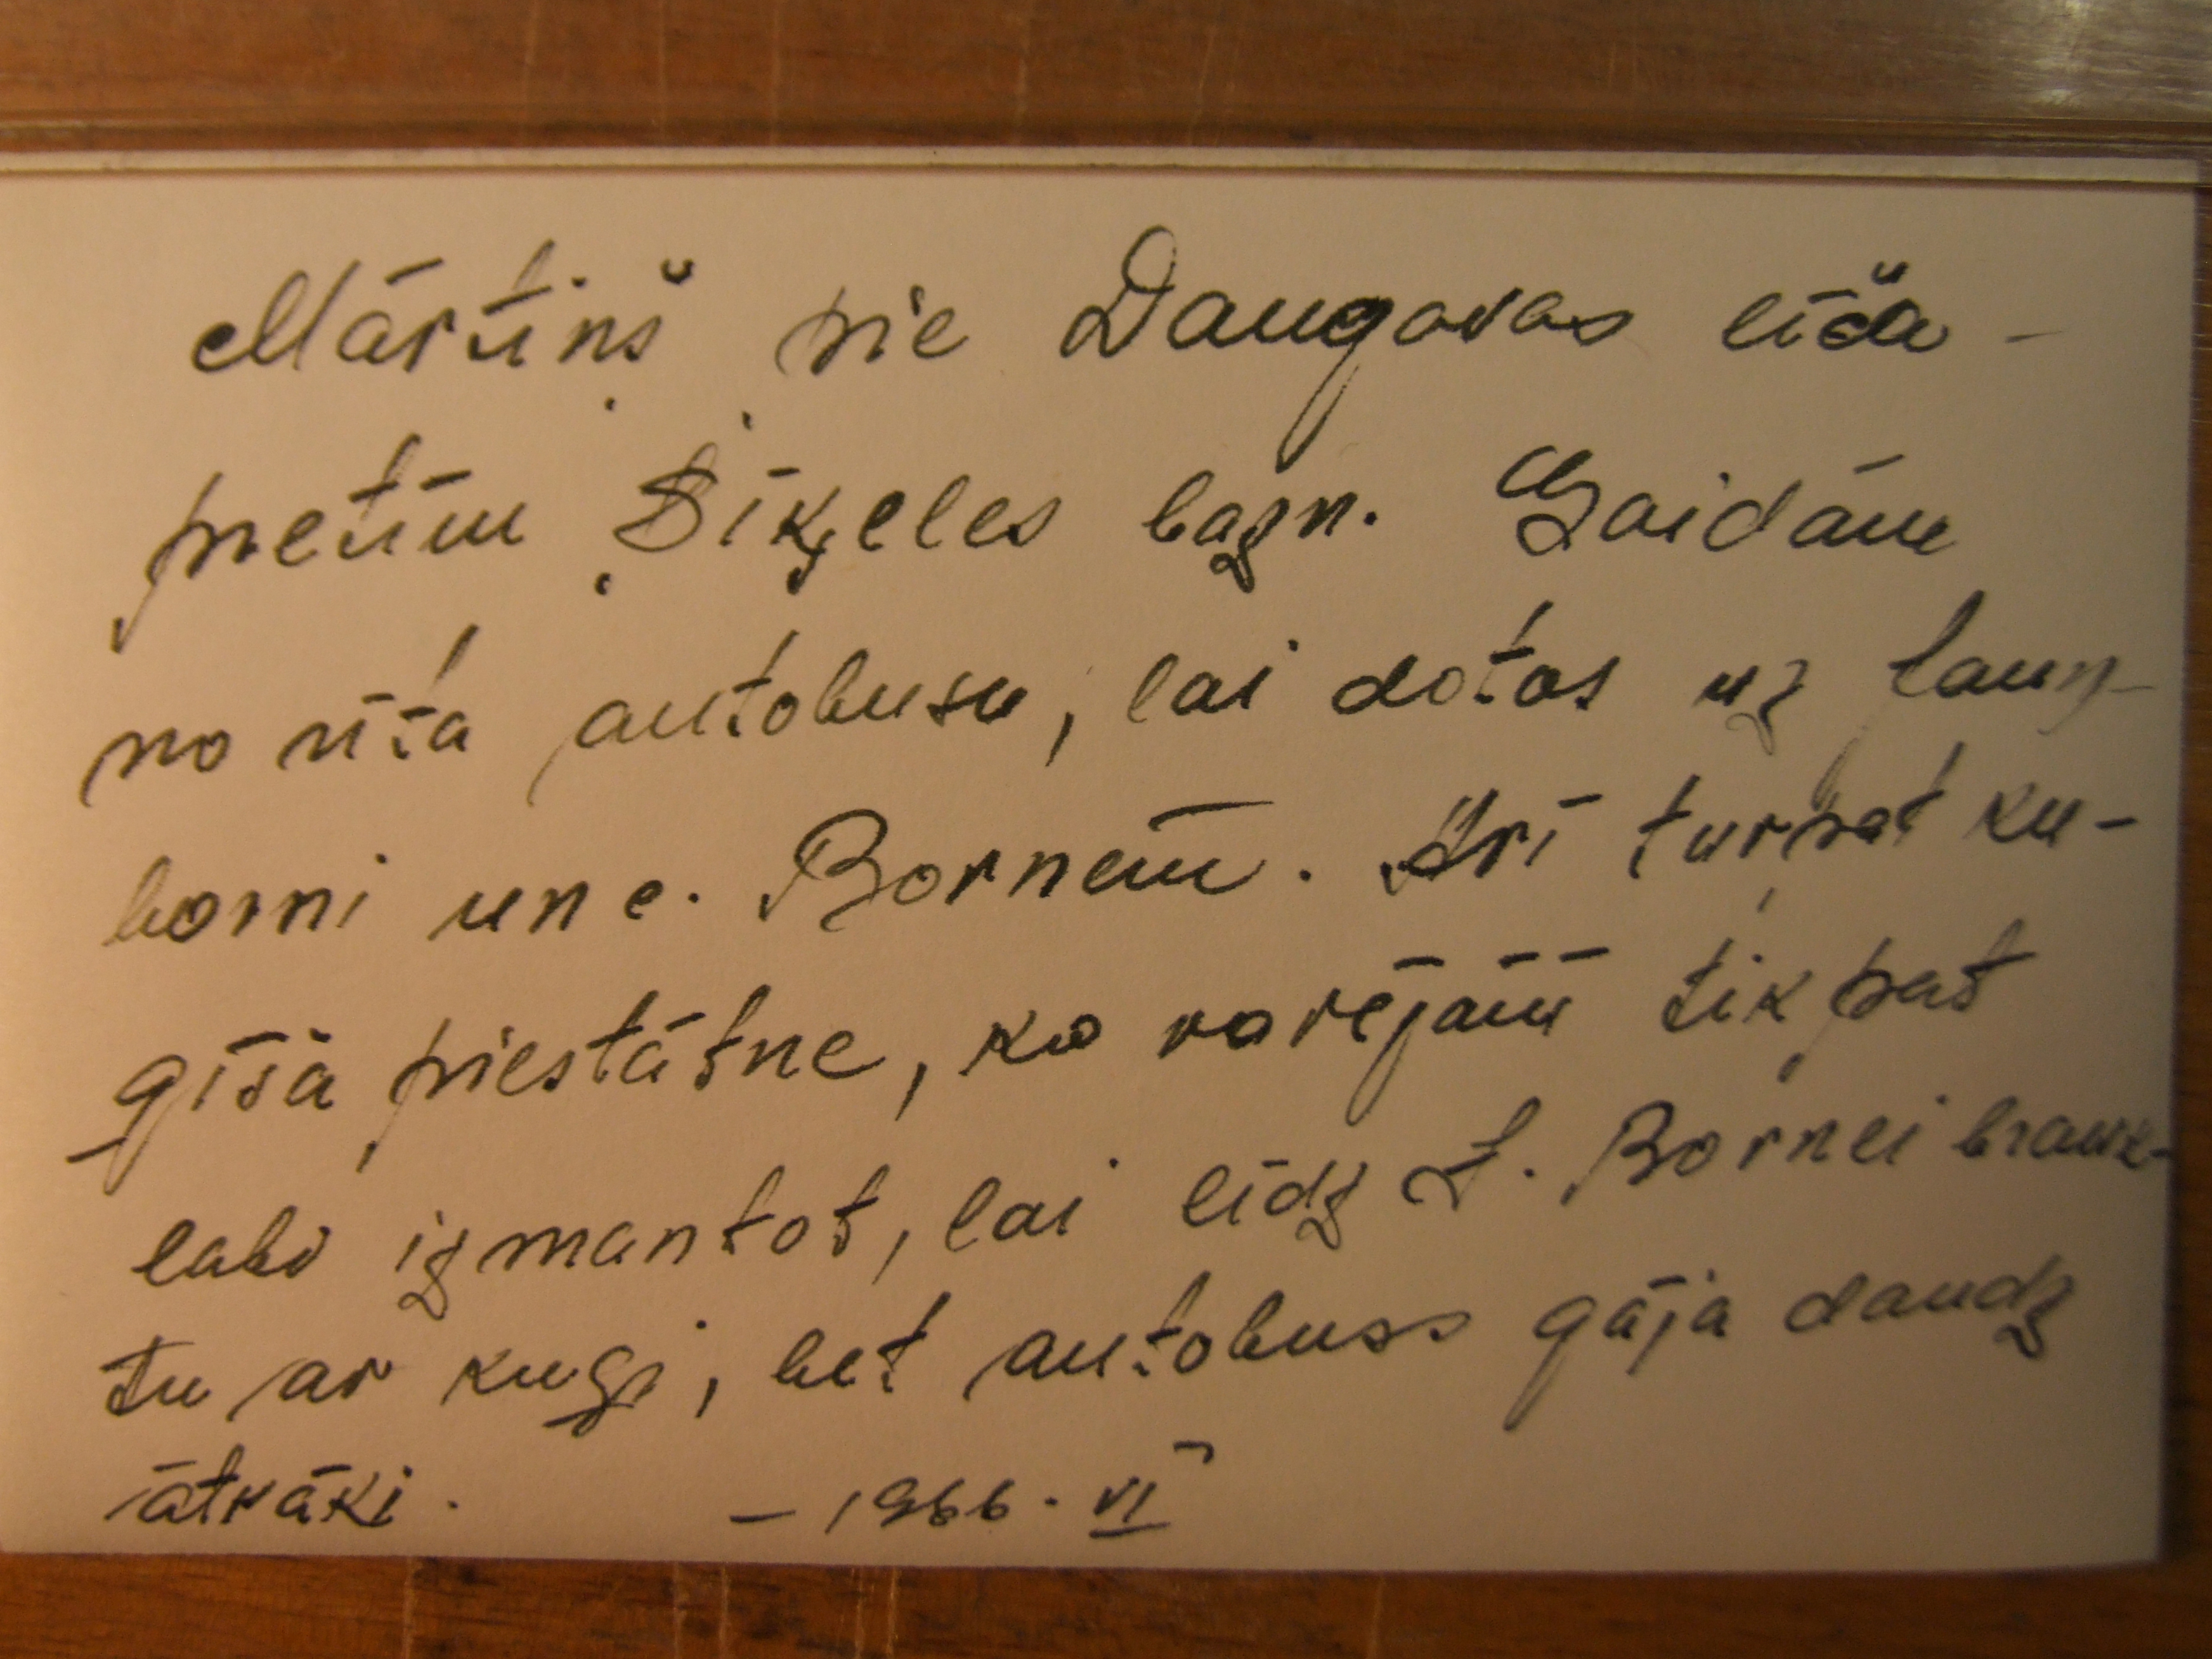 Mārtiņš pie Daugavas līča -
pretim Siķeles bazn. Gaidām
no rīta autobusu, lai dotos uz Laun-
borni un c. Bornēm. Arī turpat ku-
ģīša piestātne, ko varējām tikpat
labi izmantot, lai līdz L. Bornei brauk-
tu ar kuģi, bet autobuss gāja daudz
ātrāki. - 1966. VI